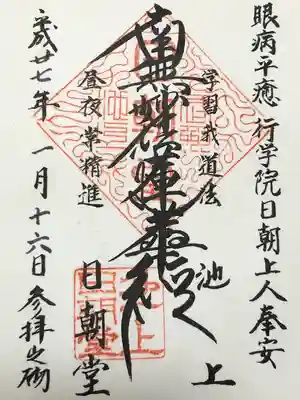 眼病平癒 行学院日朝上人奉安
学習我道法
池上
南無妙法蓮華経
昼夜常精進
日朝堂
平成廿七年一月十六日参拝之砌